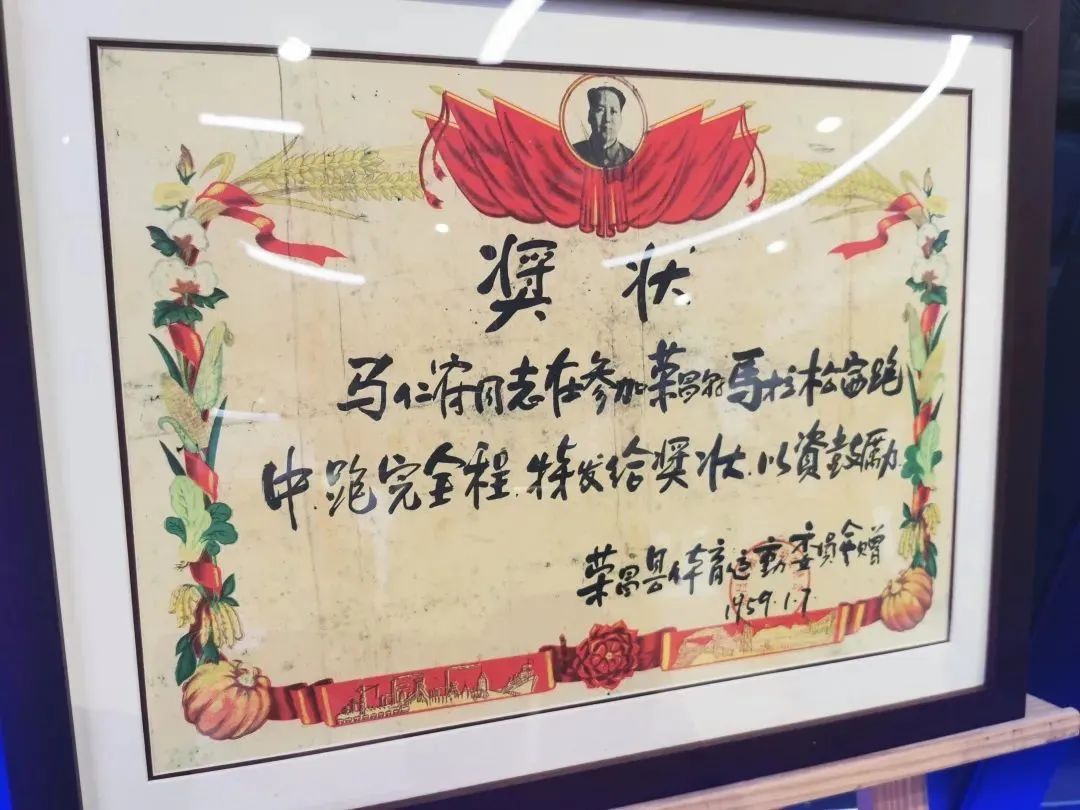 奖 状
马仁同志在参加荣昌马拉松赛跑
中.跑完全程.特发给奖状.以資鼓励
荣昌县体育运动委员会赠
1959.1.7.